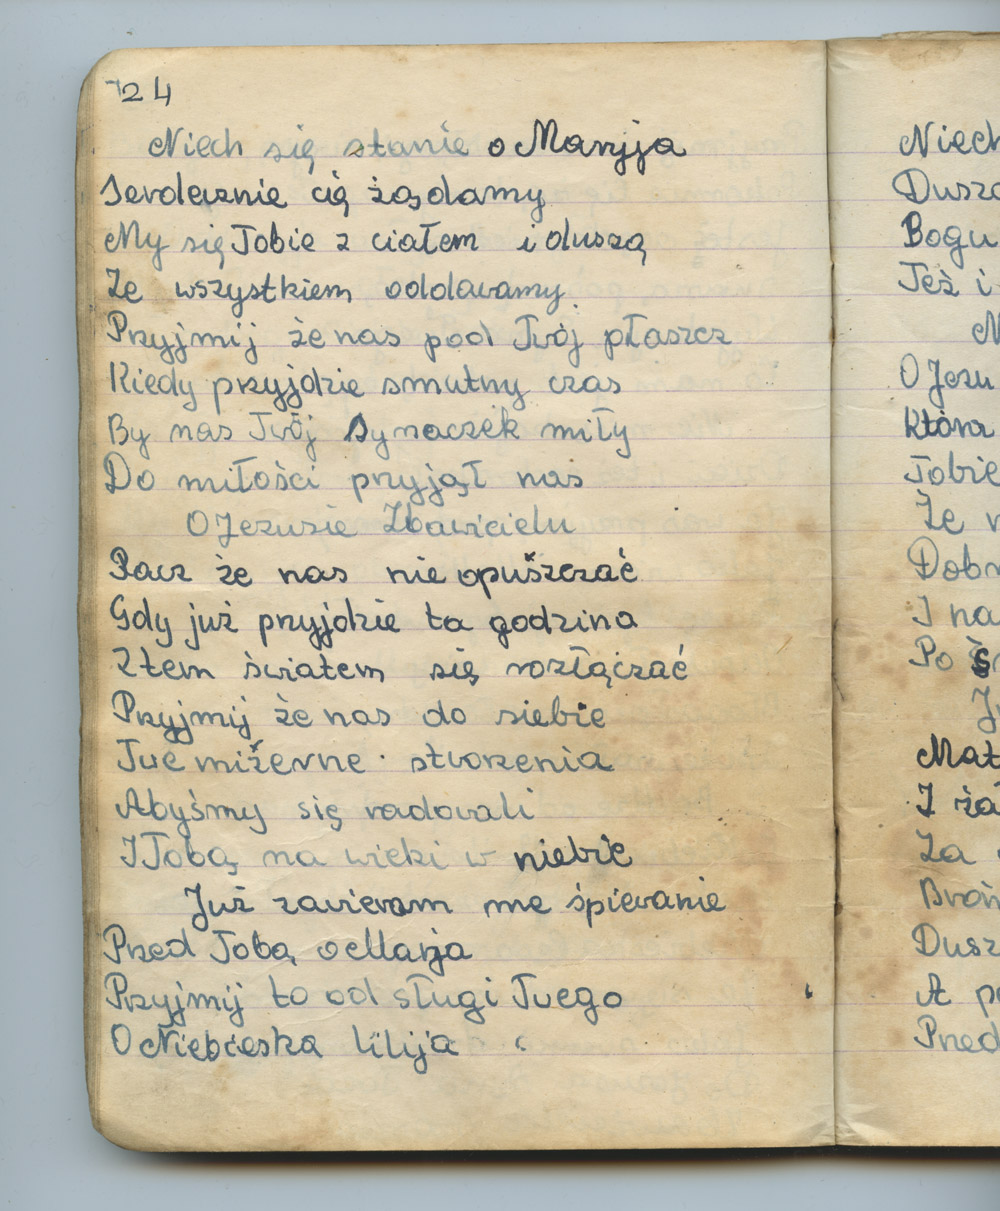 24
Niech się stanie o Maryja
Serdecznie cię żądamy
My się Tobie z ciałem i duszą
Ze wszystkiem oddawamy
Przyjmij że nas pod Twój płaszcz
Kiedy przyjdzie smutny czas
By nas Twój Synaczek miły
Do miłości przyjął nas
O Jezusie Zbawicielu
Racz że nas nie opuszczać
Gdy już przyjdzie ta godzina
Ztem światem się rozłączać
Przyjmij że nas do siebie
Twe mizerne stworzenia
Abyśmy się radowali
I Tobą na wieki w niebie
Już zawieram me śpiewanie
Przed Tobą o Marja
Przyjmij to od sługi Twego
O Niebieska lilija
Niech
Bogu
Też i
O Jezu
Która
Tobie
Że
I na
Po
Za
A